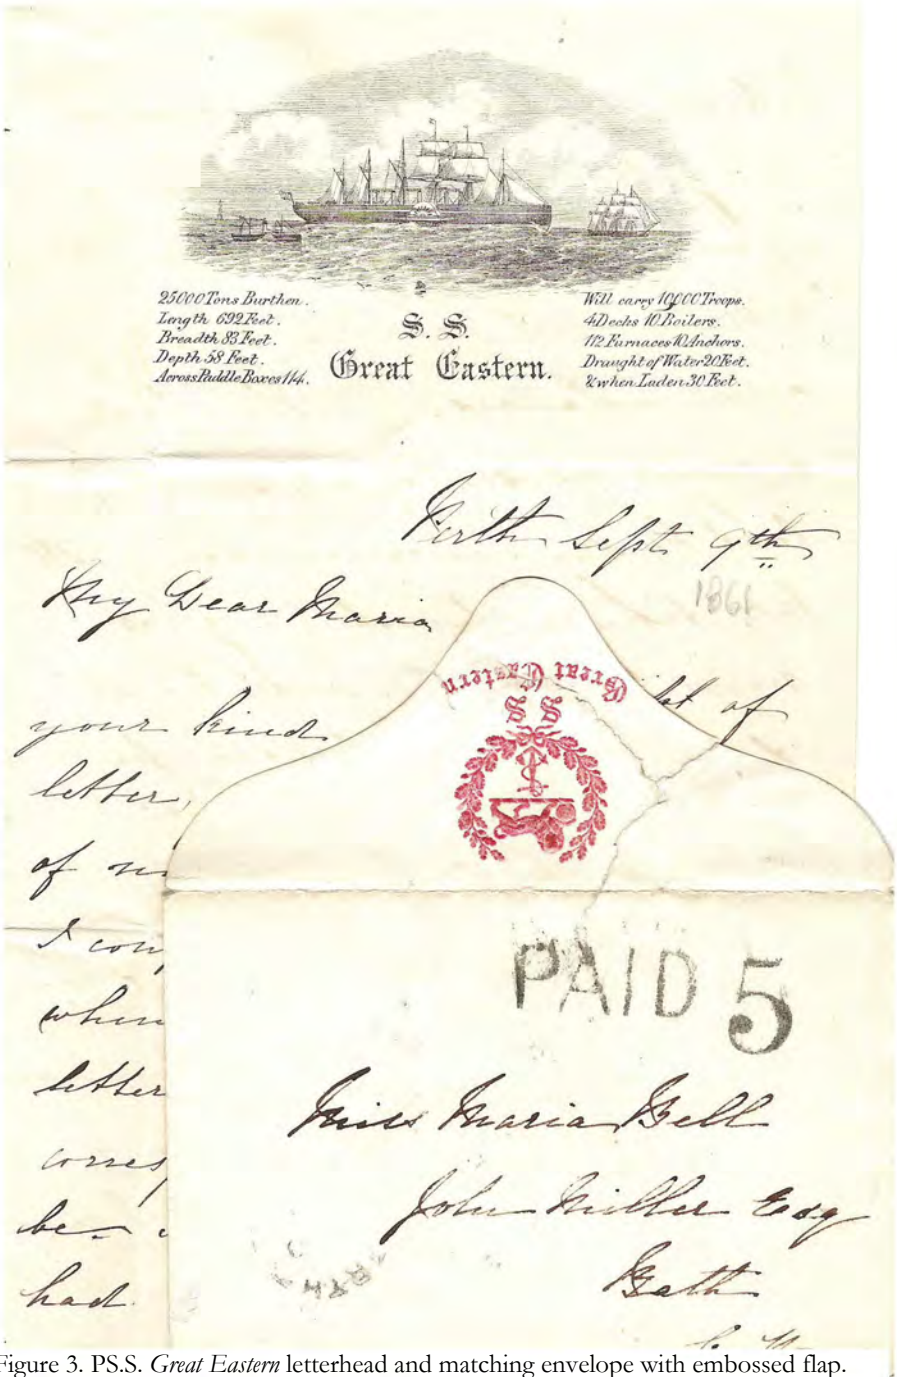 25000 Tons Burthen.
Length 692 Feet.
Breadth 83 Feet.
Depth 58 Feet.
Across Paddle Boxes 114.
S. S.
Great Eastern.
Will carry 10000 Troops.
4 Decks 10 Boilers.
112 Furnaces 10 Anchors.
Draught of Water 20 Feet.
& when Laden 30 Feet.
Perth Sept 9th
1861
My Dear Maria
of
your kind
letter,
of
I
when
letter
be
had
Great Eastern
S S
PAID 5
Miss Maria Bell
John Miller Esq
Bath
Figure 3. PS.S. Great Eastern letterhead and matching envelope with embossed flap.